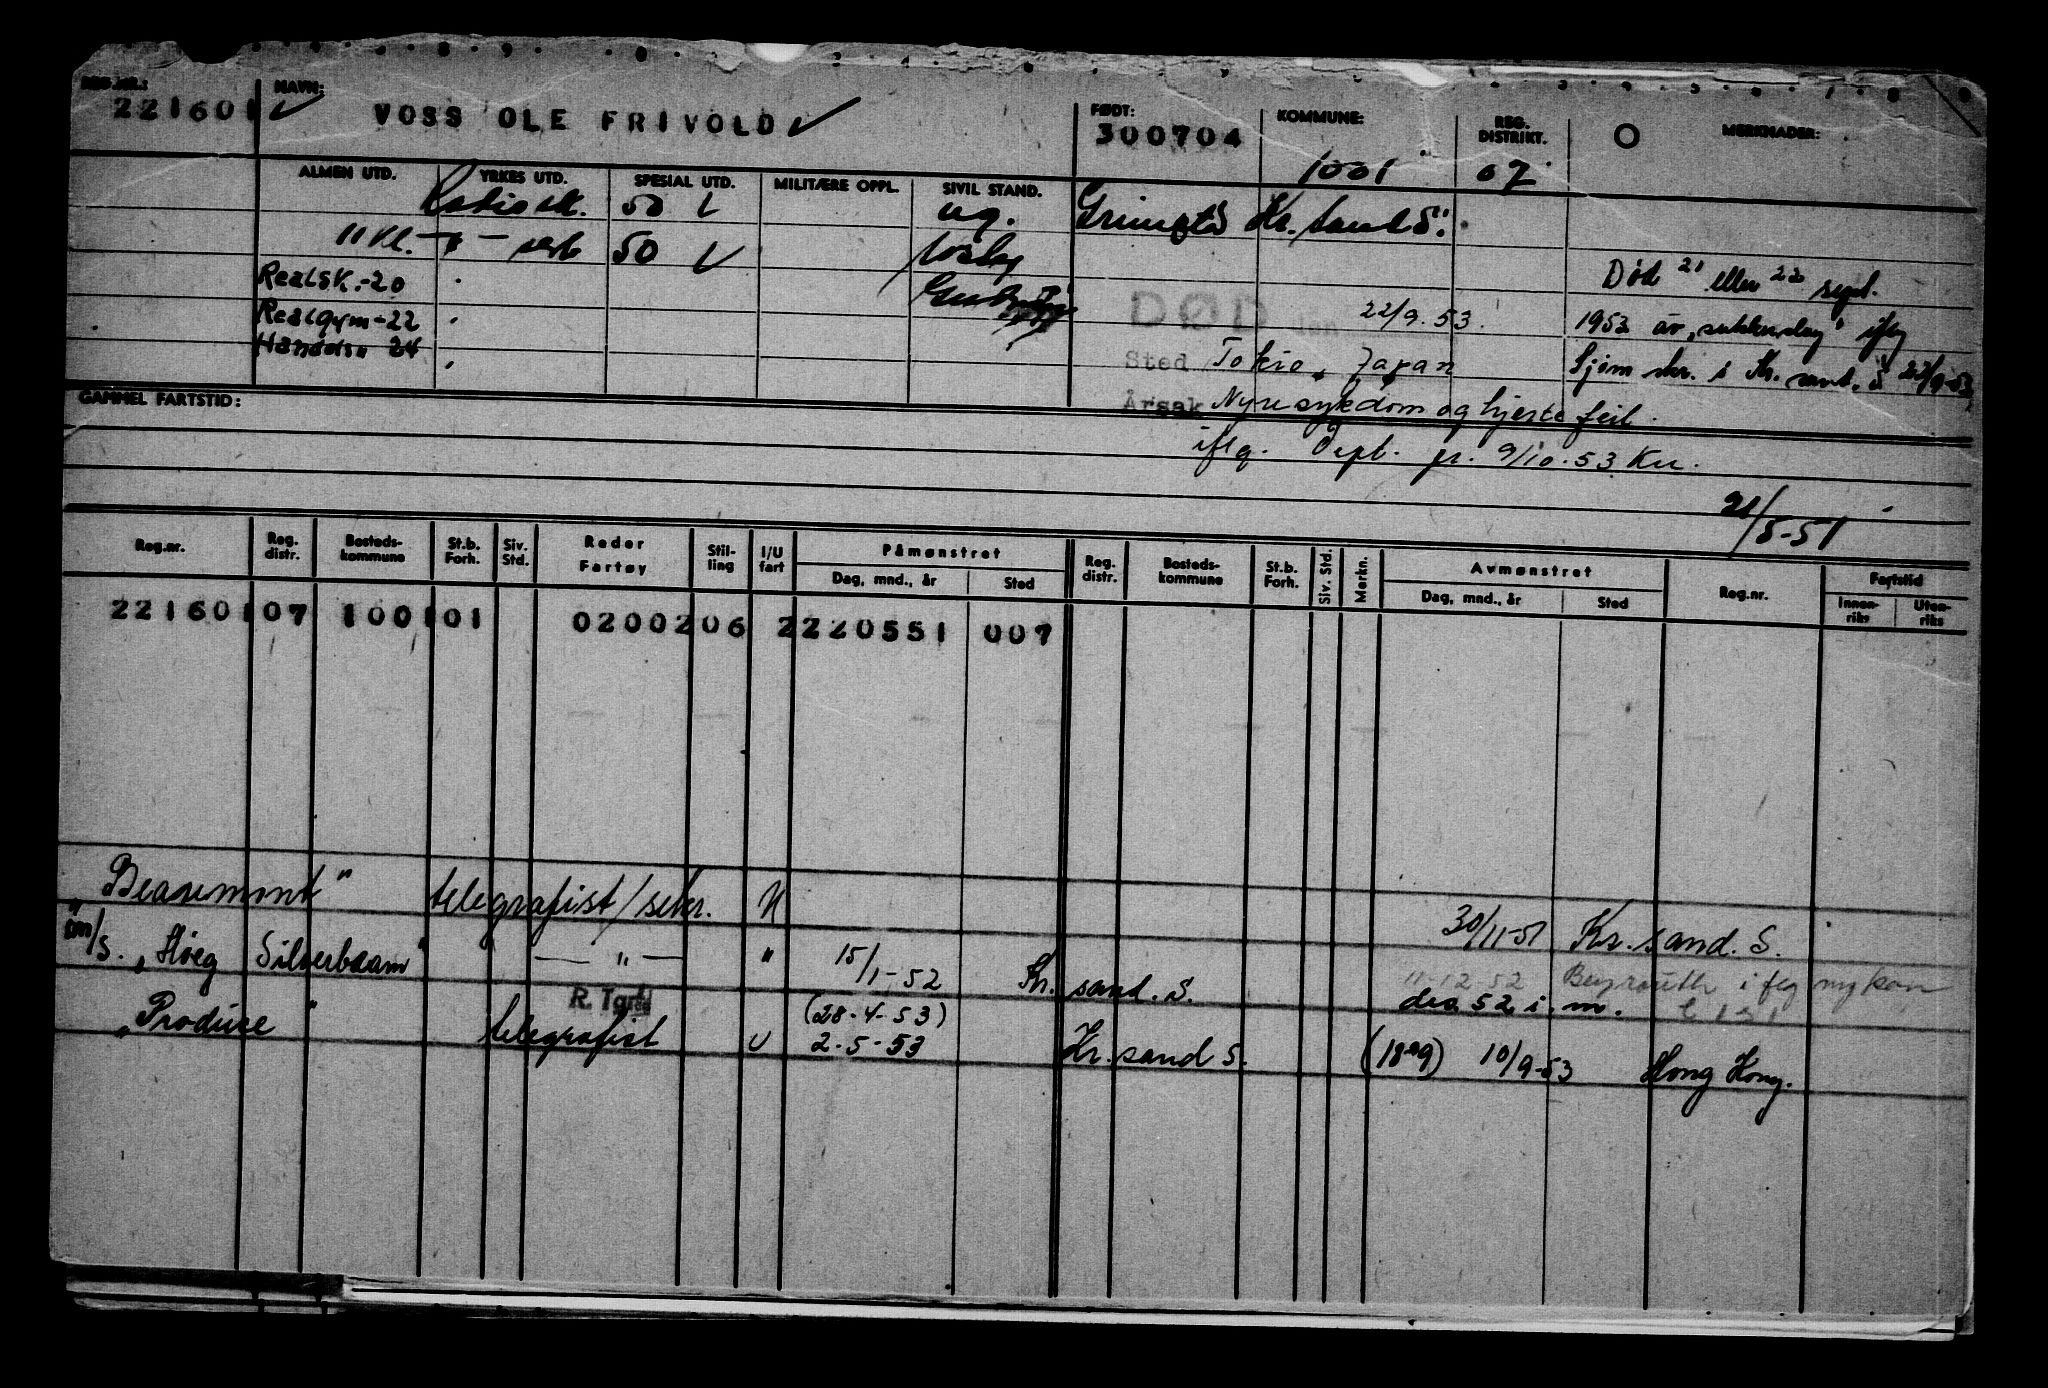 REG.NR.: NAVN: FØDT: KOMMUNE: REG. DISTRIKT. MERKNADER:
221601 VOSS OLE FRIVOLD 300704 1001 07
ALMEN UTD. YRKES UTD. SPESIAL UTD. MILITÆRE OPPL. SIVIL STAND.
50 ug. Kr. sand S.
11 kl. 50
Realsk.-20
Død 21 eller 22 sept.
Realgym-22
DØD den 22/9.53.
1953 av
24
Sted Tokio, Japan
i Kr. sand. S 23/9-53
GAMMEL FARTSTID:
Årsak Nyresykdom og hjertefeil.
iflg. Dept. pr. 9/10.53 Ku.
21/5-51
Reg.nr. Reg. distr. Bosteds-kommune St.b. Forh. Siv. Std. Reder Fartøy Stil-ling I/U fart Påmønstret Dag, mnd., år Sted Reg. distr. Bosteds-kommune St.b. Forh. Siv. Std. Merkn. Avmønstret Dag, mnd., år Sted Reg.nr. Fartstid Innen-riks Uten-riks
221601 07 1001 01 02002 06 2 220551 007
telegrafist/sekr. U 30/11-51 Kr. sand. S.
m/s. „Høeg Silverbeam" — " — " 15/1-52 Kr. sand. S.
11-12-52 Beyrouth
des. 52 i. m.
R. Tgrf.
„Produce" telegrafist U (28-4-53)
2-5-53 Kr. sand S. 10/9-53 Hong Kong.